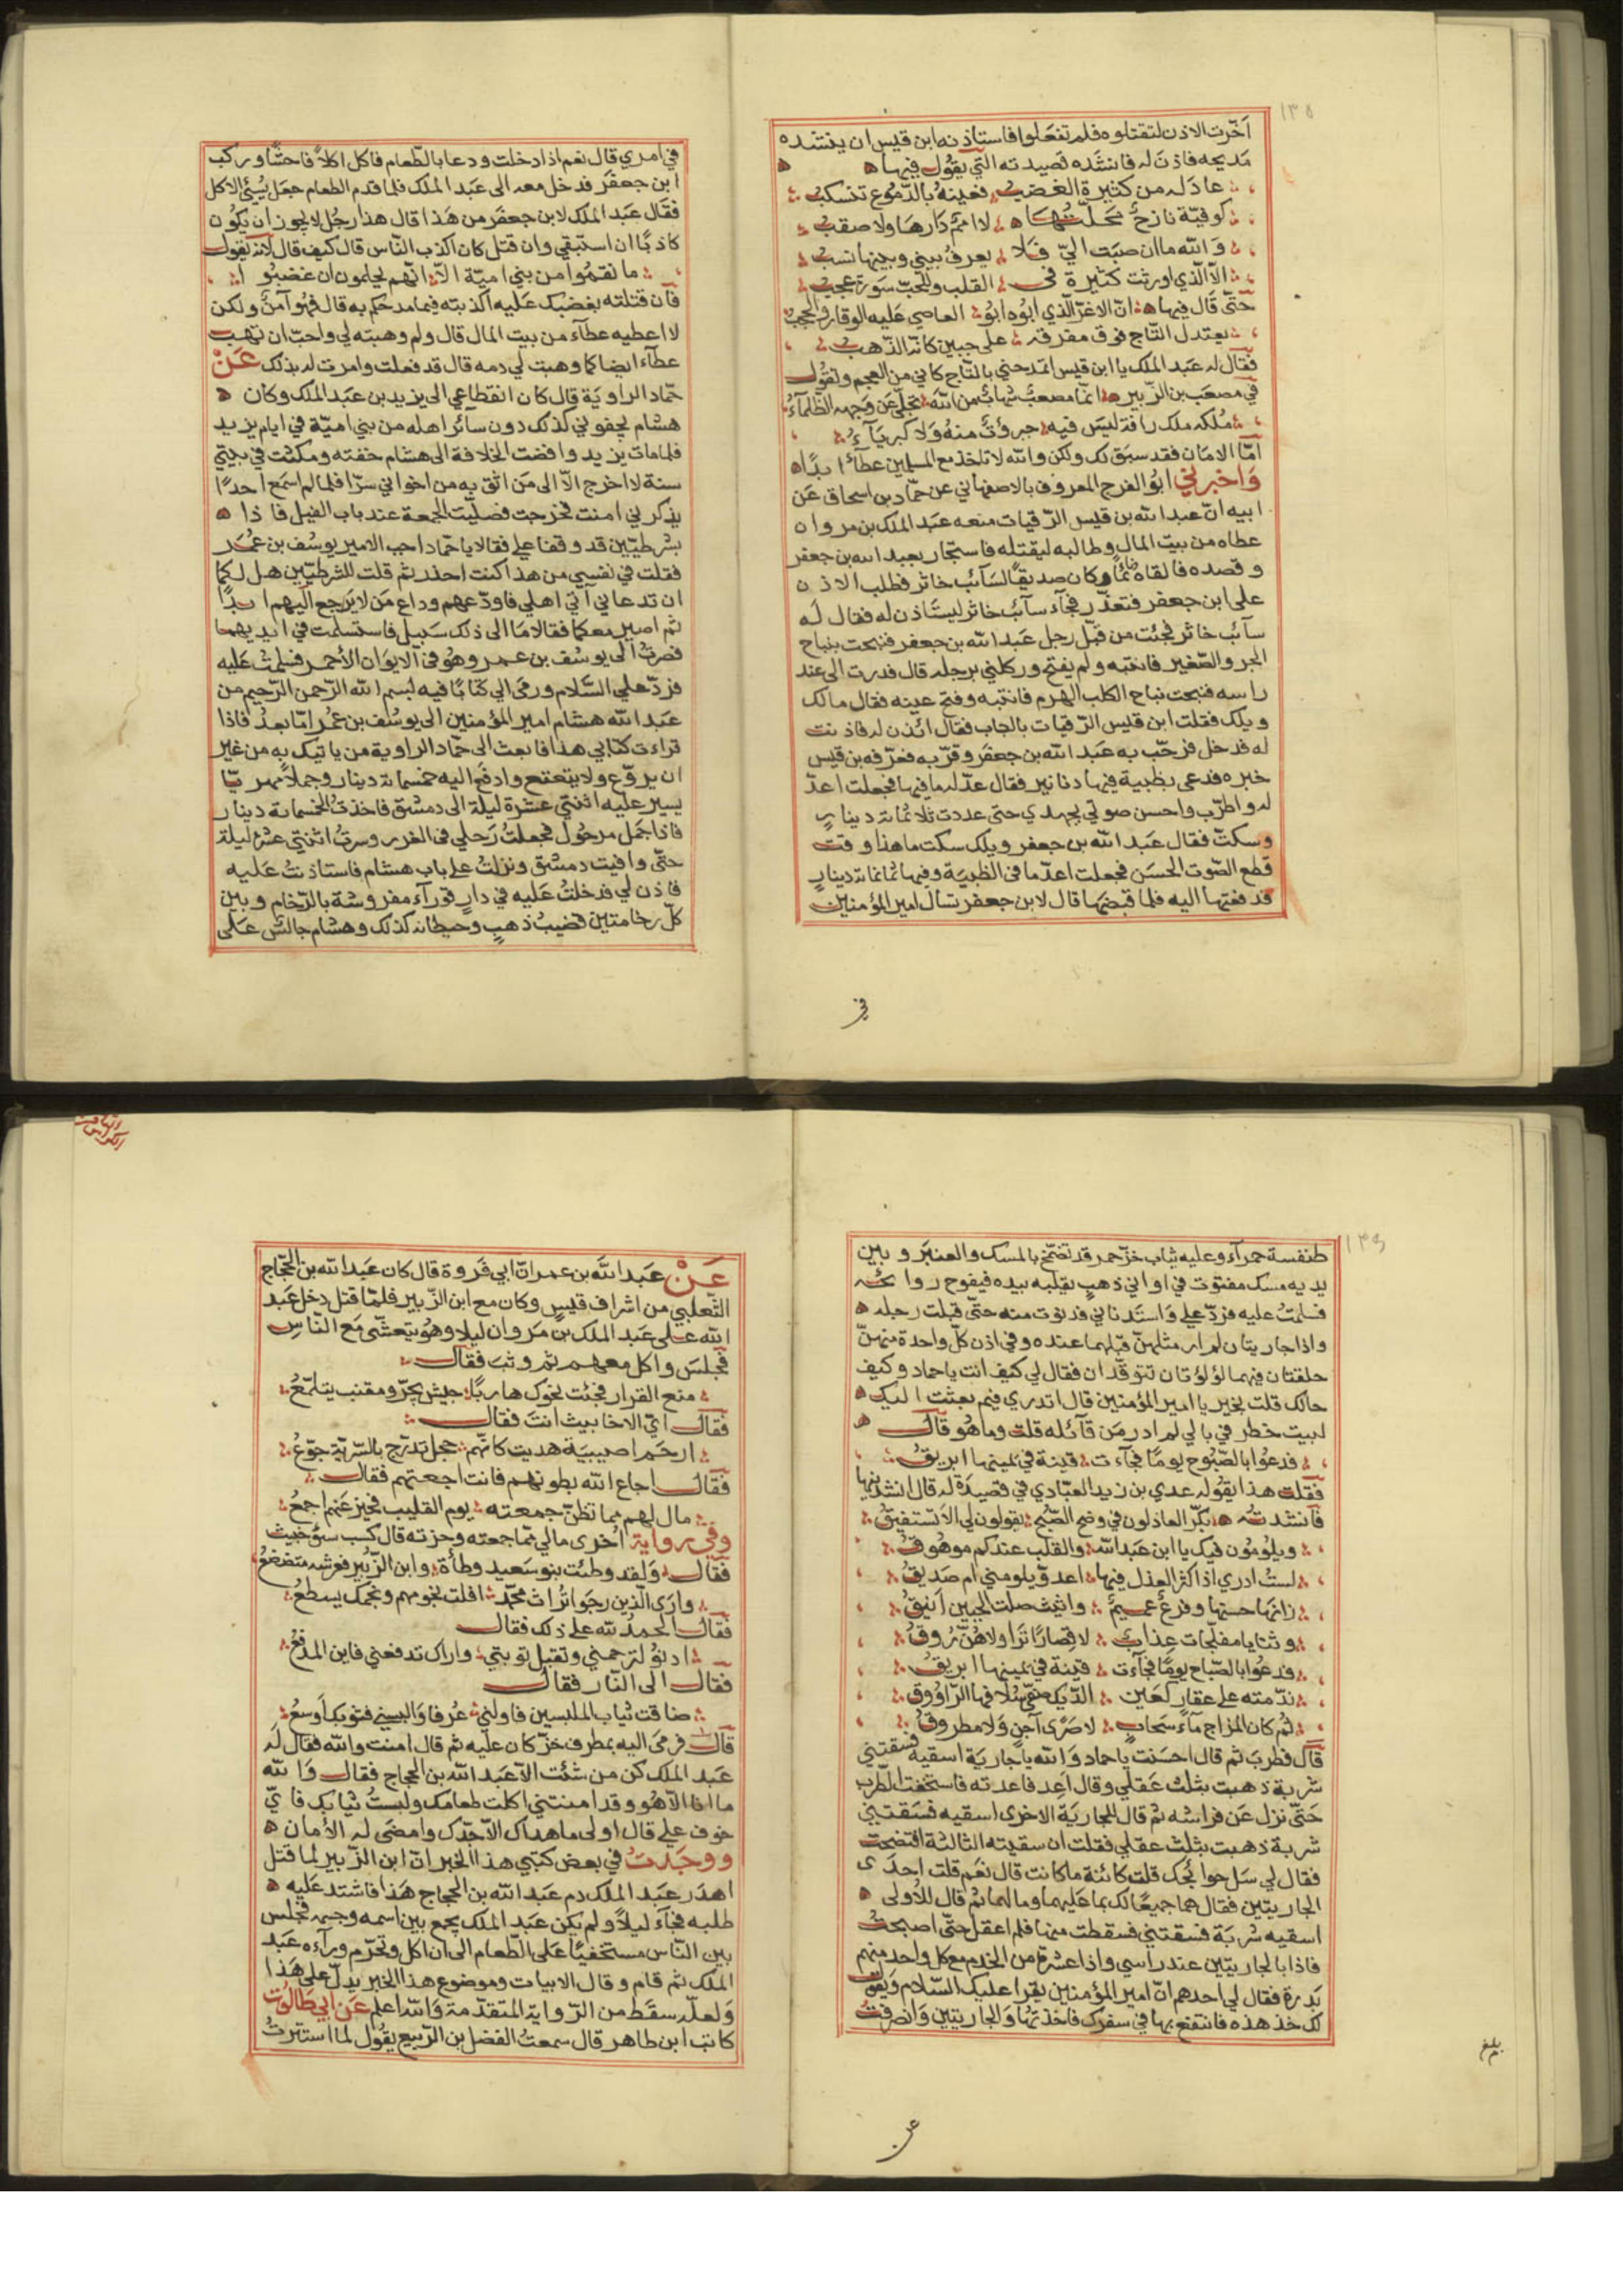 ١٣٥
أخّرت الاذن لتقتلوه فلم تفعلوا فاستاذنه ابن قيس ان ينشده
مديحه فاذن له فانشده قصيدته التي يقول فيها
عادله من كثيرة الغضب فعينه بالدّموع تنسكب
كوفيّة نازح محلّتها لا امم دارها ولا صقب
والله ما ان صبت اليّ فلا يعرف بيني وبينها نسب
الا الّذي اورثت كثيرة في القلب وللحبّ سورة عجب
حتّى قال فيها انّ الاغرّ الّذي ابوه ابو العاصي عليه الوقار والحجب
يعتدل التّاج فوق مفرقه على جبين كانّه الذّهب
فقال له عبد الملك يا ابن قيس اتمدحني بالتّاج كاني من العجم وتقول
في مصعب بن الزّبير انّما مصعب شهاب من الله تجلّى عن وجهه الظلمآء
ملكه ملك رافة ليس فيه جبروت منه ولا كبريآء
امّا الامان فقد سبق لك ولكن والله لا تاخذ مع المسلمين عطآءً ابدًا
واخبرني ابو الفرج المعروف بالاصفهاني عن حمّاد بن اسحاق عن
ابيه انّ عبد الله بن قيس الرّقيات منعه عبد الملك بن مروان
عطاه من بيت المال وطالبه ليقتله فاستجار بعبد الله بن جعفر
وقصده فالقاه نائمًا وكان صديقًا لسآئب خاثر فطلب الاذن
على ابن جعفر فتعذّر فجآء سآئب خاثر ليستاذن له فقال له
سآئب خاثر فجئت من قبل رجل عبد الله بن جعفر فنبحت بنباح
الجرو الصّغير فانتبه ولم يفتح وركلني برجله قال فدرت الى عند
راسه فنبحت نباح الكلب الهرم فانتبه وفتح عينه فقال مالك
ويلك فقلت ابن قيس الرّقيات بالباب فقال ائذن له فاذنت
له فدخل فرحّب به عبد الله بن جعفر وقرّبه فعرّفه بن قيس
خبره فدعى بظبية فيها دنانير فقال عدّ له ما فيها فجعلت اعدّ
له واطرّب واحسن صوتي بجهدي حتى عددت ثلاثمائة دينار
وسكتّ فقال عبد الله بن جعفر ويلك سكت ما هذا وقت
قطع الصّوت الحسن فجعلت اعدّ ما في الظبية وفيها ثمانمائة دينار
فدفعتها اليه فلما قبضها قال لابن جعفر تسال امير المؤمنين
في
في امري قال نعم اذا دخلت ودعا بالطّعام فاكل اكلاً فاحشًا وركب
ابن جعفر فدخل معه الى عبد الملك فلما قدم الطعام جعل يسئ الاكل
فقال عبد الملك لابن جعفر من هذا قال هذا رجل لا يجوز ان يكون
كاذبًا ان استبقي وان قتل كان اكذب النّاس قال كيف قال لانّه يقول
ما نقموا من بني اميّة الاّ انّهم يحلمون ان غضبوا
فان قتلته بغضبك عليه اكذبته فيما مدحكم به قال فهو آمن ولكن
لا اعطيه عطآء من بيت المال قال ولم وهبته لي واحبّ ان تهب
عطآءه ايضا كما وهبت لي دمه قال قد فعلت وامرت له بذلك عن
حمّاد الراوية قال كان انقطاعي الى يزيد بن عبد الملك وكان
هشام يجفوني كذلك دون سآئر اهله من بني اميّة في ايام يزيد
فلما مات يزيد وافضت الخلافة الى هشام خفته ومكثت في بيتي
سنة لا اخرج الاّ الى من اثق به من اخواني سرّا فلما لم اسمع احدًا
يذكرني امنت فخرجت فصلّيت الجمعة عند باب الفيل فاذا
بشرطيّين قد وقفا علي فقالا يا حمّاد اجب الامير يوسف بن عمر
فقلت في نفسي من هذا كنت احذر ثم قلت للشرطيّين هل لكما
ان تدعاني آتي اهلي فاودّعهم وداع من لا يرجع اليهم ابدًا
ثم اصير معكما فقالا ما الى ذلك سبيل فاستسلمت في ايديهما
فصرت الى يوسف بن عمر وهو في الايوان الأحمر فسلمت عليه
فردّ علي السّلام ورمى الي كتابًا فيه بسم الله الرّحمن الرّحيم من
عبد الله هشام امير المؤمنين الى يوسف بن عمر امّا بعد فاذا
قراءت كتابي هذا فابعث الى حمّاد الراوية من ياتيك به من غير
ان يروّع ولا يتعتع وادفع اليه خمسمائة دينار وجملاً مهريّا
يسير عليه اثنتي عشرة ليلة الى دمشق فاخذت الخمسمائة دينار
فاذا جمل مرحول فجعلت رجلي في الغرز وسرت اثنتي عشرة ليلة
حتّى وافيت دمشق ونزلت على باب هشام فاستاذنت عليه
فاذن لي فدخلت عليه في دار قورآء مفروشة بالرّخام وبين
كلّ رخامتين قضيب ذهب وحيطانه كذلك وهشام جالس على
١٣٦
طنفسة حمرآء وعليه ثياب خزّ حمر قد تضمّخ بالمسك والعنبر وبين
يديه مسك مفتوت في اواني ذهب يقلبه بيده فيفوح روائحه
فسلمت عليه فردّ علي واستدناني فدنوت منه حتّى قبلت رجله
واذا جاريتان لم ار مثلهنّ قبلهما عنده وفي اذن كلّ واحدة منهنّ
حلقتان فيهما لؤلؤتان تتوقّدان فقال لي كيف انت يا حماد وكيف
حالك قلت بخير يا امير المؤمنين قال اتدري فيم بعثت اليك
لبيت خطر في بالي لم ادر من قآئله قلت وما هو قال
فدعوا بالصّبوح يومًا فجآءت قينة في يمينها ابريق
فقلت هذا يقوله عدي بن زيد العبّادي في قصيدة له قال انشدنيها
فانشدته بكّر العاذلون في وضح الصّبح يقولون لي الا تستفيق
ويلومون فيك يا ابن عبد الله والقلب عندكم موهوق
لست ادري اذا اكثر العذل فيها اعدوّ يلومني ام صديق
زانها حسنها وفرع عميم واثيث صلت الجبين انيق
وثنايا مفلّجات عذاب لا قصارًا ترا ولا هنّ روق
فدعوا بالصّباح يومًا فجآءت قينة في يمينها ابريق
قدّمته على عقار كعين الدّيك صفّى سلافها الرّاووق
ثم كان المزاج مآء سحاب لا صرًى آجن ولا مطروق
قال فطرب ثم قال احسنت يا حماد والله يا جارية اسقيه فسقتني
شربة ذهبت بثلث عقلي وقال اعد فاعدته فاستخفّه الطّرب
حتّى نزل عن فراشه ثم قال للجارية الاخرى اسقيه فسقتني
شربة ذهبت بثلث عقلي فقلت ان سقيته الثالثة افتضحت
فقال لي سل حوائجك قلت كائنة ما كانت قال نعم قلت احدى
الجاريتين فقال هما جميعًا لك بما عليهما ومالهما ثم قال للأولى
اسقيه شربة فسقتني فسقطت منها فلم اعقل حتّى اصبحت
فاذا بالجاريتين عند راسي واذا عشرة من الخدم مع كل واحد منهم
بدرة فقال لي احدهم انّ امير المؤمنين يقرا عليك السّلام ويقول
لك خذ هذه فانتفع بها في سفرك فاخذتها والجاريتين وانصرفت
بلغ
عن
عن عبد الله بن عمران ابي فروة قال كان عبد الله بن الحجّاج
الثّعلبي من اشراف قيس وكان مع ابن الزّبير فلمّا قتل دخل عبد
الله على عبد الملك بن مروان ليلا وهو يتعشّى مع النّاس
فجلس واكل معهم ثم وثب فقال
منع القرار فجئت نحوك هاربًا جيش يجرّ ومقنب يتلمّع
فقال ايّ الاخابيث انت فقال
ارحم اصيبية هديت كانّهم حجل تدرّج بالسّريّة جوّع
فقال اجاع الله بطونهم فانت اجعتهم فقال
مال لهم مما تظنّ جمعته يوم القليب فحيز عنهم اجمع
وفي رواية اخرى مالي ممّا جمعته وحزته قال كسب سوٍ خبيث
فقال ولقد وطئت بنو سعيد وطأة وابن الزّبير فعرشه متضعضع
وارى الّذين رجوا تراث محمّد افلت نجومهم ونجمك يسطع
فقال الحمد لله على ذلك فقال
ادنو لترحمني وتقبل توبتي واراك تدفعني فاين المدفع
فقال الى النّار فقال
ضاقت ثياب الملبسين فاولني عرفا والبسني فثوبك اوسع
قال فرمى اليه بمطرف خزّ كان عليه ثم قال امنت والله فقال له
عبد الملك كن من شئت الاّ عبد الله بن الحجاج فقال والله
ما انا الاّ هو وقد امنتني اكلت طعامك ولبست ثيابك فايّ
خوف علي قال اولى ما هداك الاّ جدّك وامضى له الأمان
ووجدت في بعض كتبي هذا الخبر انّ ابن الزّبير لما قتل
اهدر عبد الملك دم عبد الله بن الحجاج هذا فاشتد عليه
طلبه فجآء ليلاً ولم يكن عبد الملك يجمع بين اسمه وجهه فجلس
بين النّاس مستخفيًا على الطّعام الى ان اكل وتحرّم ورآءه عبد
الملك ثم قام وقال الابيات وموضوع هذا الخبر يدلّ على هذا
ولعلّه سقط من الرّواية المتقدّمة والله اعلم عن ابي طالوت
كاتب ابن طاهر قال سمعت الفضل بن الرّبيع يقول لما استترت